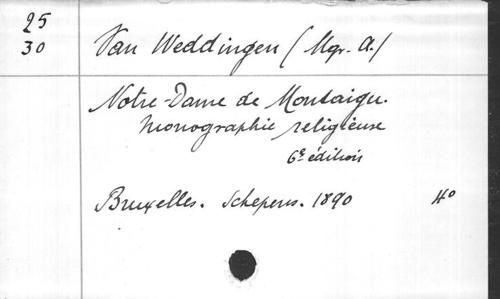 25
30
Van Weddingen (Mgr. A.)
Notre-Dame de Montaigu.
Monographie religieuse
6e édition
Bruxelles. Schepens. 1890 4o